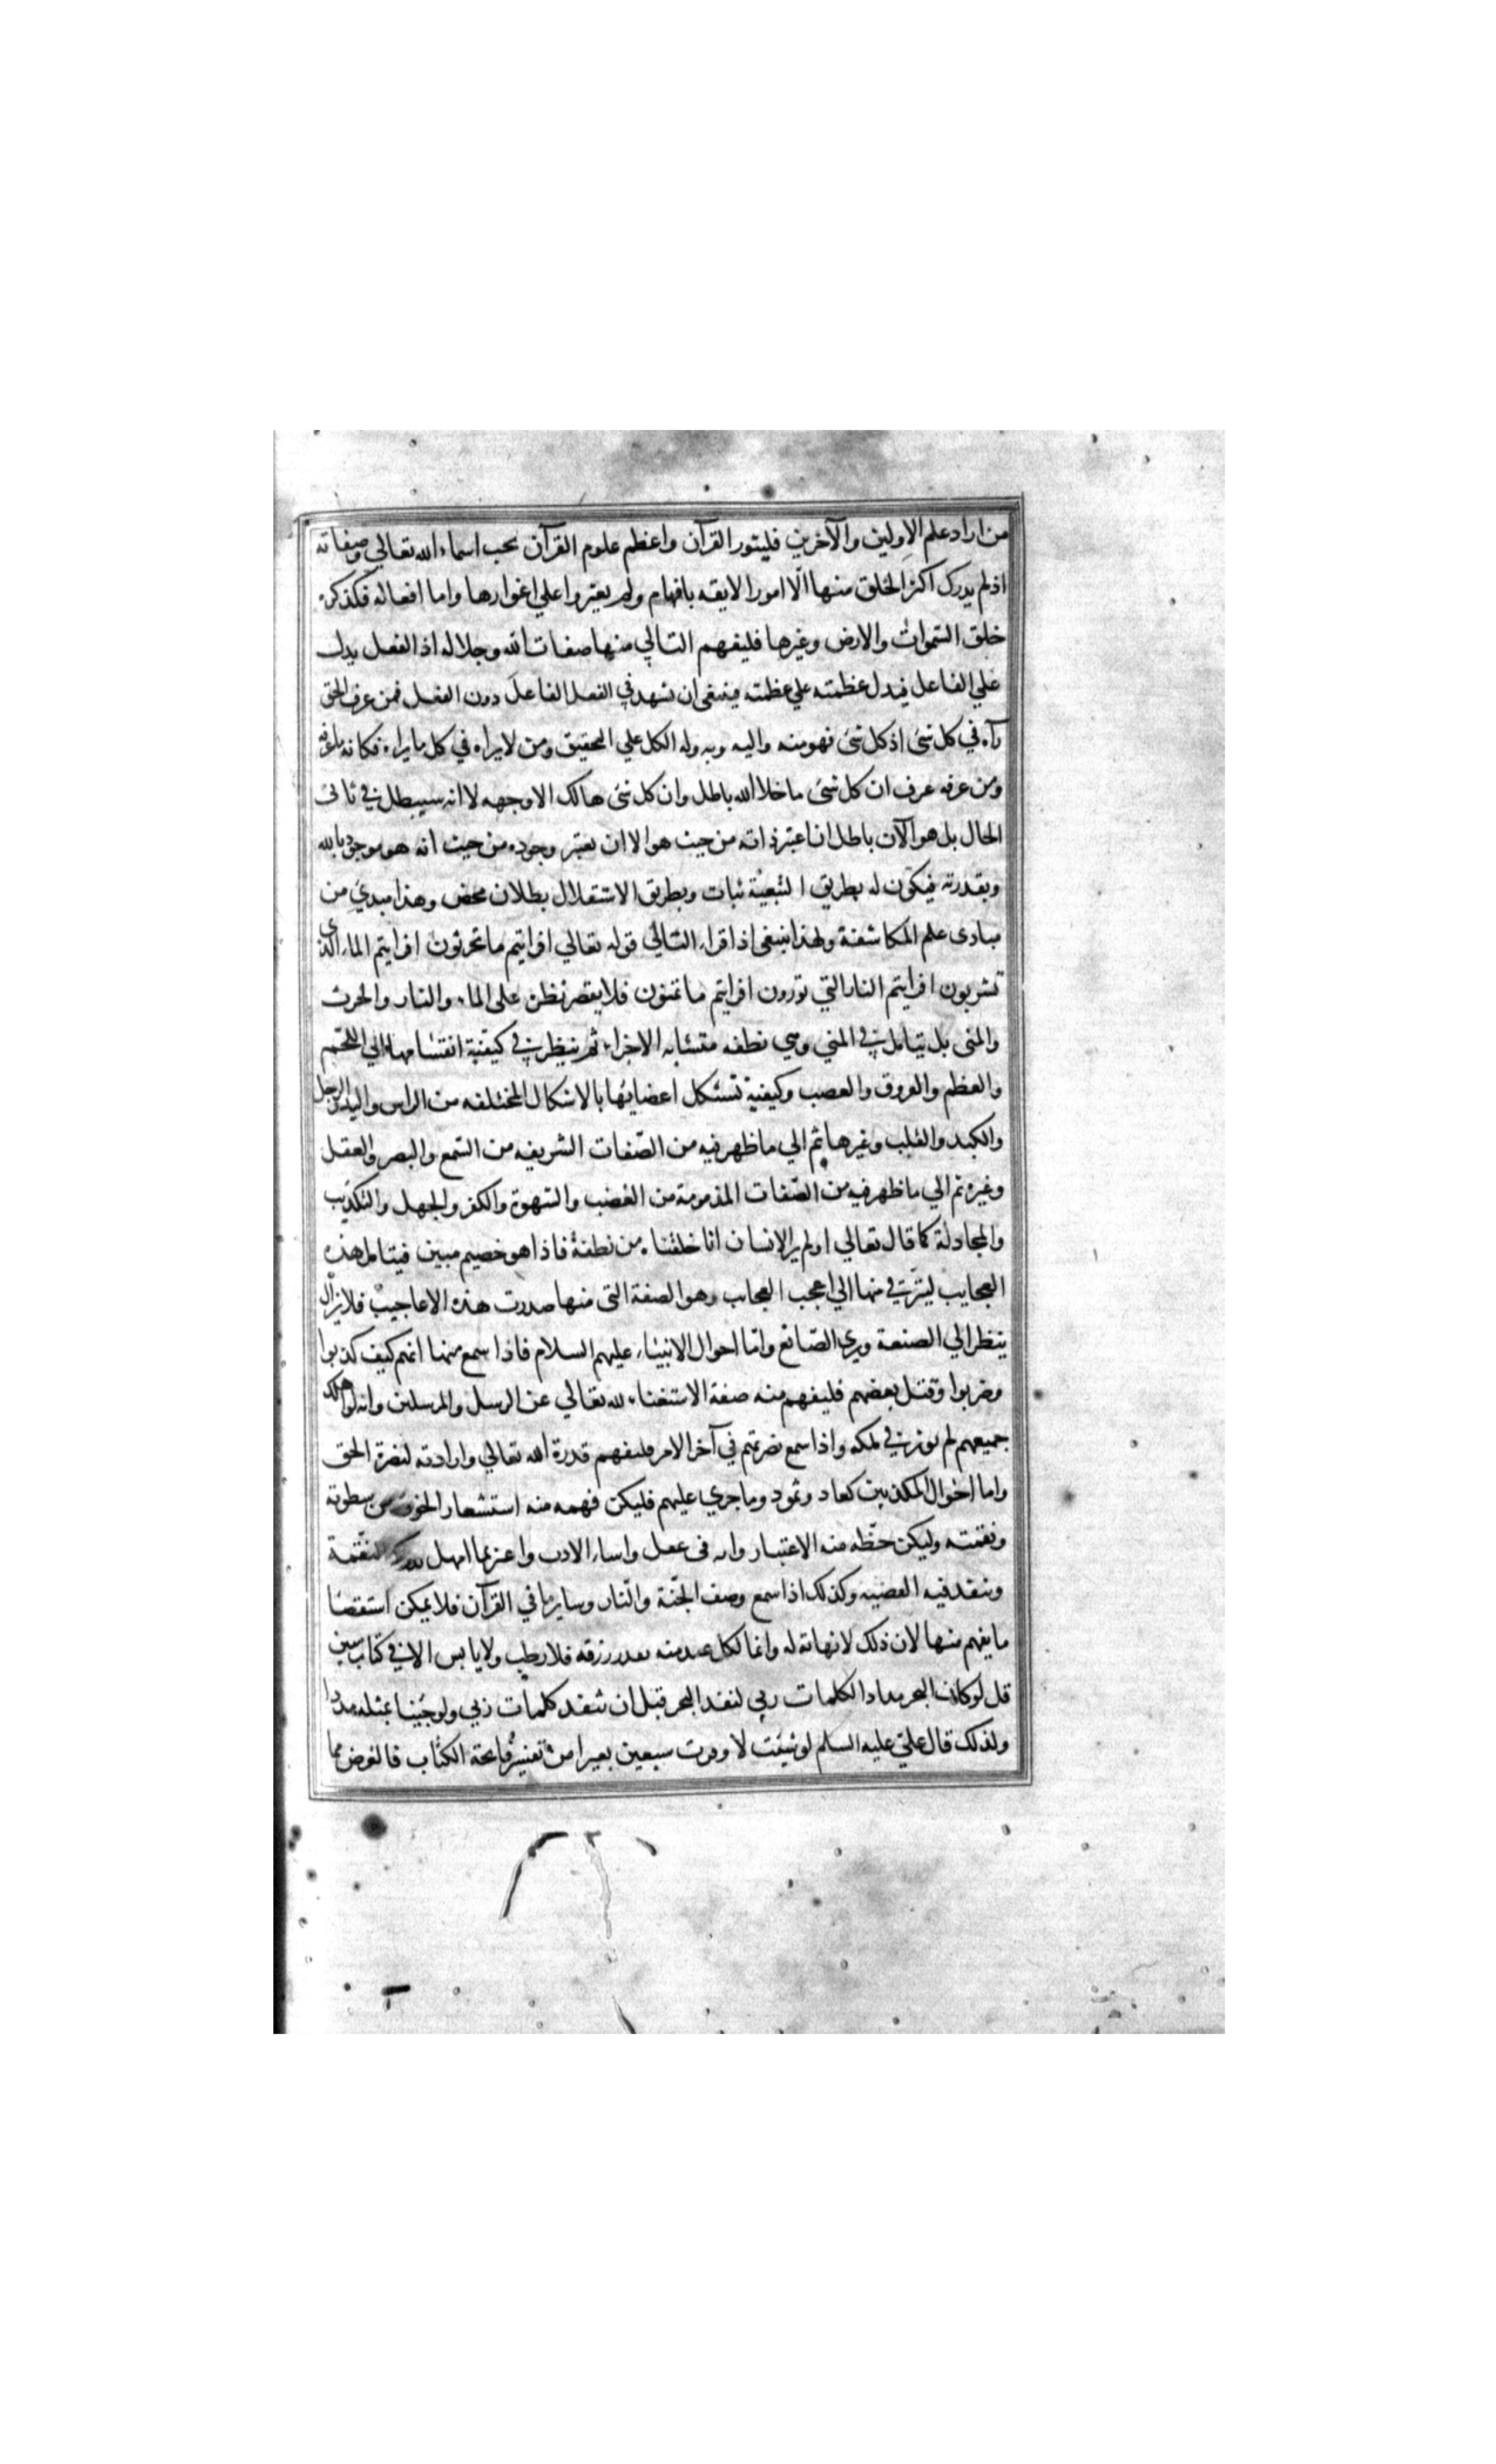 من اراد علم الاولين والآخرين فليثور القرآن واعظم علوم القرآن تحت اسماء الله تعالي وصفاته
اذ لم يدرك اكثر الخلق منها الّا امورا لايقه بافهام ولم يعثروا علي اغوارها واما افعاله فكذكره
خلق السّموات والارض وغيرها فليفهم التالي منها صفات الله وجلاله اذ الفعل يدل
علي الفاعل فيدل عظمته علي عظمته فينبغي ان تشهد في الفعل الفاعل دون الفعل فمن عرف الحق
رآه في كل شئ اذ كل شئ فهو منه واليه وبه وله الكل علي التحقيق ومن لا يراه في كل ما يراه فكانه ما عرفه
ومن عرفه عرف ان كل شئ ما خلا الله باطل وان كل شئ هالك الا وجهه لا انه سيبطل في ثاني
الحال بل هو الآن باطل ان اعتبر ذاته من حيث هو الا ان يعتبر وجوده من حيث انه هو موجود بالله
وبقدرته فيكون له بطريق التبعيّة ثبات وبطريق الاستقلال بطلان محض وهذا مبدئ من
مبادى علم المكاشفة ولهذا ينبغى اذا قراء التالي قوله تعالي افرايتم ما تحرثون افرايتم الماء الذي
تشربون افرايتم النار التي تورون افرايتم ما تمنون فلا يقصر نظره على الماء والنار والحرث
والمنى بل يتامل في المني وهي نطفه متشابه الاجزاء ثم ينظر في كيفية انقسامها الي اللّحم
والعظم والعروق والعصب وكيفية تشكل اعضايها بالاشكال المختلفه من الراس واليد والرجل
والكبد والقلب وغيرها ثم الي ما ظهر فيه من الصّفات الشريفه من السّمع والبصر والعقل
وغيره ثم الي ما ظهر فيه من الصّفات المذمومة من الغضب والشهوة والكفر والجهل والتكذيب
والمجادلة كما قال تعالي اولم ير الانسان انا خلقناه من نطفة فاذا هو خصيم مبين فيتامل هذه
العجايب ليترقي منها الي اعجب العجاب وهو الصفة التى منها صدرت هذه الاعاجيب فلا يزال
ينظر الي الصنعة ويري الصّانع وامّا احوال الانبياء عليهم السلام فاذا سمع منها انهم كيف كذبوا
وضربوا وقتل بعضهم فليفهم منه صفة الاستغناء لله تعالي عن الرسل والمرسلين وانه لو اهلك
جميعهم لم يوثر في ملكه واذا سمع نصرتهم في آخر الامر فليفهم قدرة الله تعالي وارادته لنصرة الحق
واما احوال المكذبين كعاد وثمود وما جري عليهم فليكن فهمه منه استشعار الخوف من سطوته
ونقمته وليكن حظّه منه الاعتبار وانه ان غفل واساء الادب واغتر بما امهل النقمة
وينفد فيه القضيه وكذلك اذا سمع وصف الجنّة والنّار وساير ما في القرآن فلا يمكن استقصا
ما يفهم منها لان ذلك لا نهاية له وانما لكل عبد منه بقدر رزقه فلا رطب ولا يابس الا في كتاب مبين
قل لو كان البحر مدادا لكلمات ربي لنفد البحر قبل ان تنفد كلمات ربي ولو جئنا بمثله مددا
ولذلك قال علي عليه السلم لو شئت لاوقرت سبعين بعيرا من تفسير فاتحة الكتاب فالغرض مما